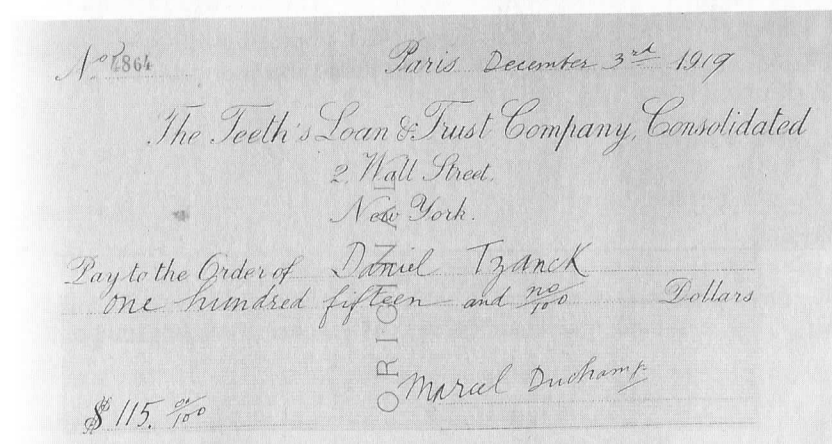 No 4864 Paris December 3rd 1919
The Teeth's Loan & Trust Company, Consolidated
2, Wall Street.
New York.
Pay to the Order of Daniel Tzanck
one hundred fifteen and no/100 Dollars
Marcel Duchamp
$ 115. oo/100
ORIGINAL